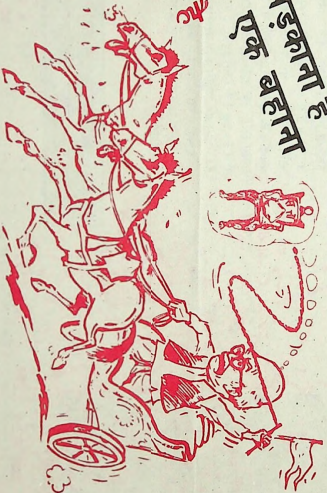 ड़काना है
एक बहाना